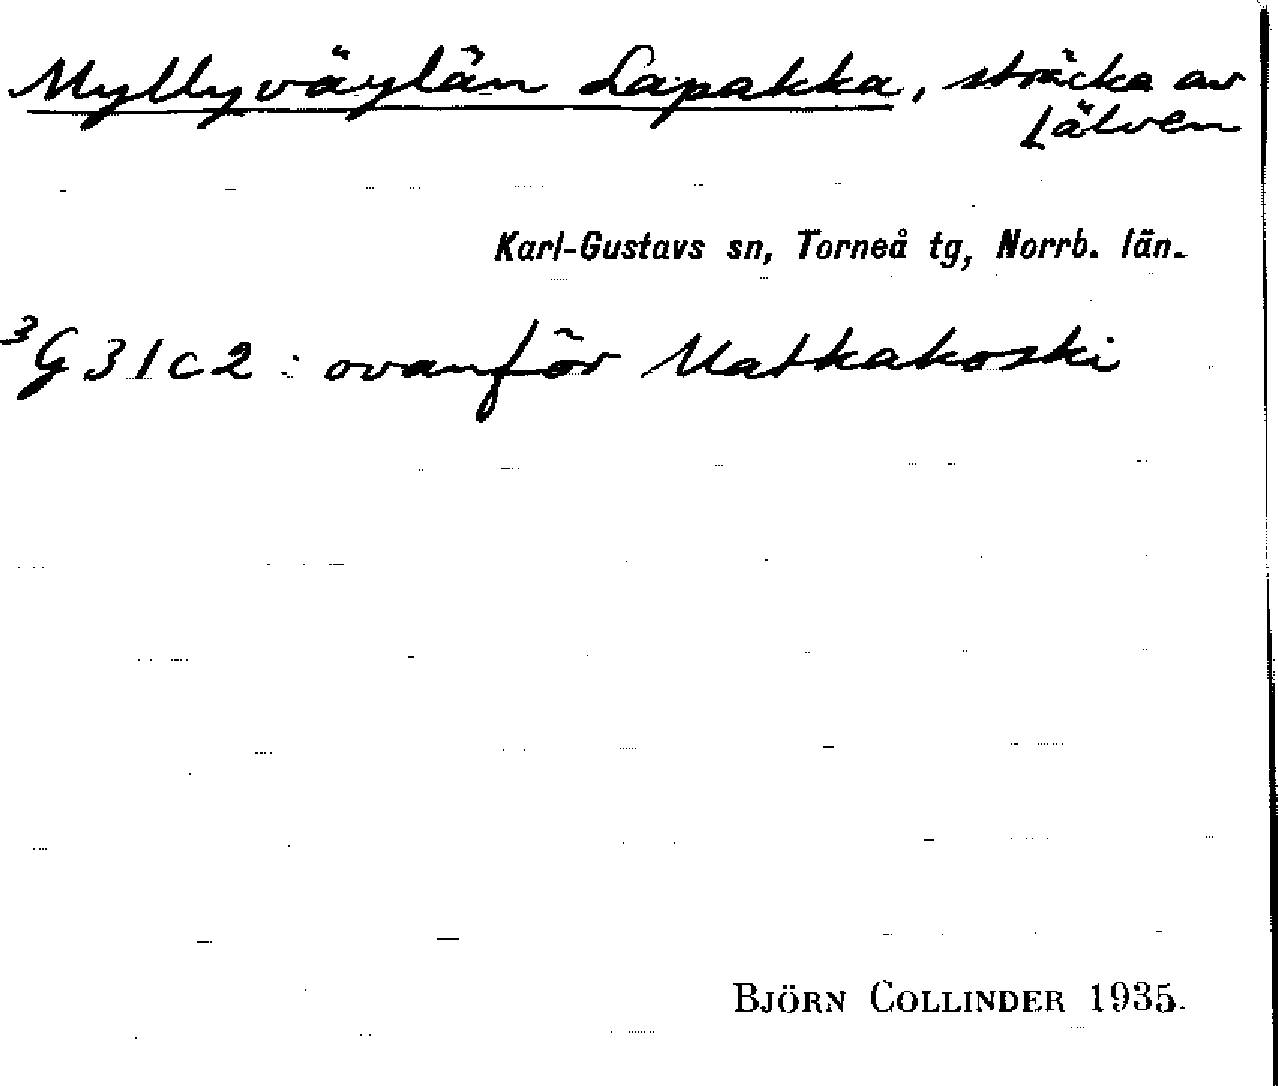 Myllyväylän Lapakka, sträcka av
älven
Karl-Gustavs sn, Torneå tg, Norrb. län.
³G31c2: ovanför Matkakoski
BJÖRN COLLINDER 1935.